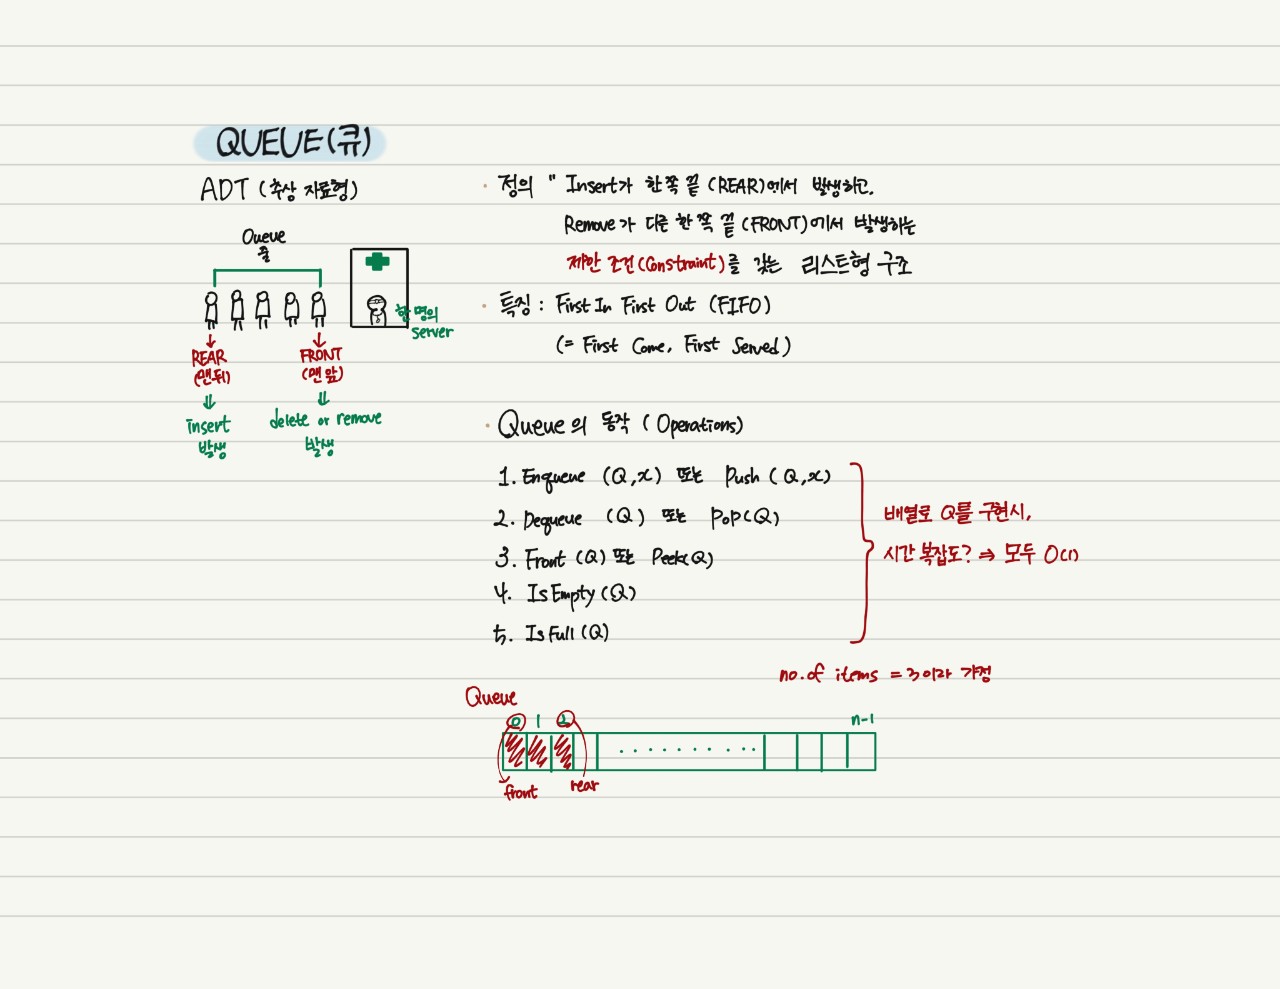 QUEUE(큐)
ADT (추상 자료형)
Queue
줄
한 명의
server
REAR
(맨뒤)
FRONT
(맨 앞)
insert
발생
delete or remove
발생
· 정의 " Insert가 한쪽 끝 (REAR)에서 발생하고,
Remove가 다른 한쪽 끝 (FRONT)에서 발생하는
제한 조건(Constraint)를 갖는 리스트형 구조
· 특징 : First In First Out (FIFO)
(= First Come, First Served)
· Queue의 동작 (Operations)
1. Enqueue (Q,x) 또는 Push (Q,x)
2. Dequeue (Q) 또는 POP(Q)
3. Front (Q) 또는 Peek(Q)
4. IsEmpty(Q)
5. IsFull(Q)
배열로 Q를 구현시,
시간 복잡도? ⇒ 모두 O(1)
no.of items = 3이라 가정
Queue
0 1 2 n-1
. . . . . . . . . .
front rear